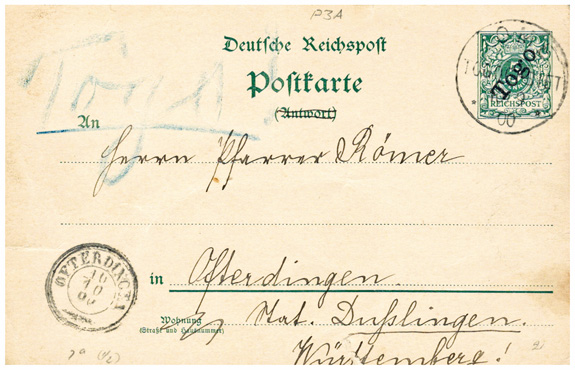 P3A
Deutsche Reichspost
Postkarte
(Antwort)
Togo!
Togo
REICHSPOST
00
An
Herrn Pfarrer Römer
OFTERDINGEN
16
10
00
in Ofterdingen.
Wohnung
(Straße und Hausnummer)
Stat. Dußlingen.
Württemberg!